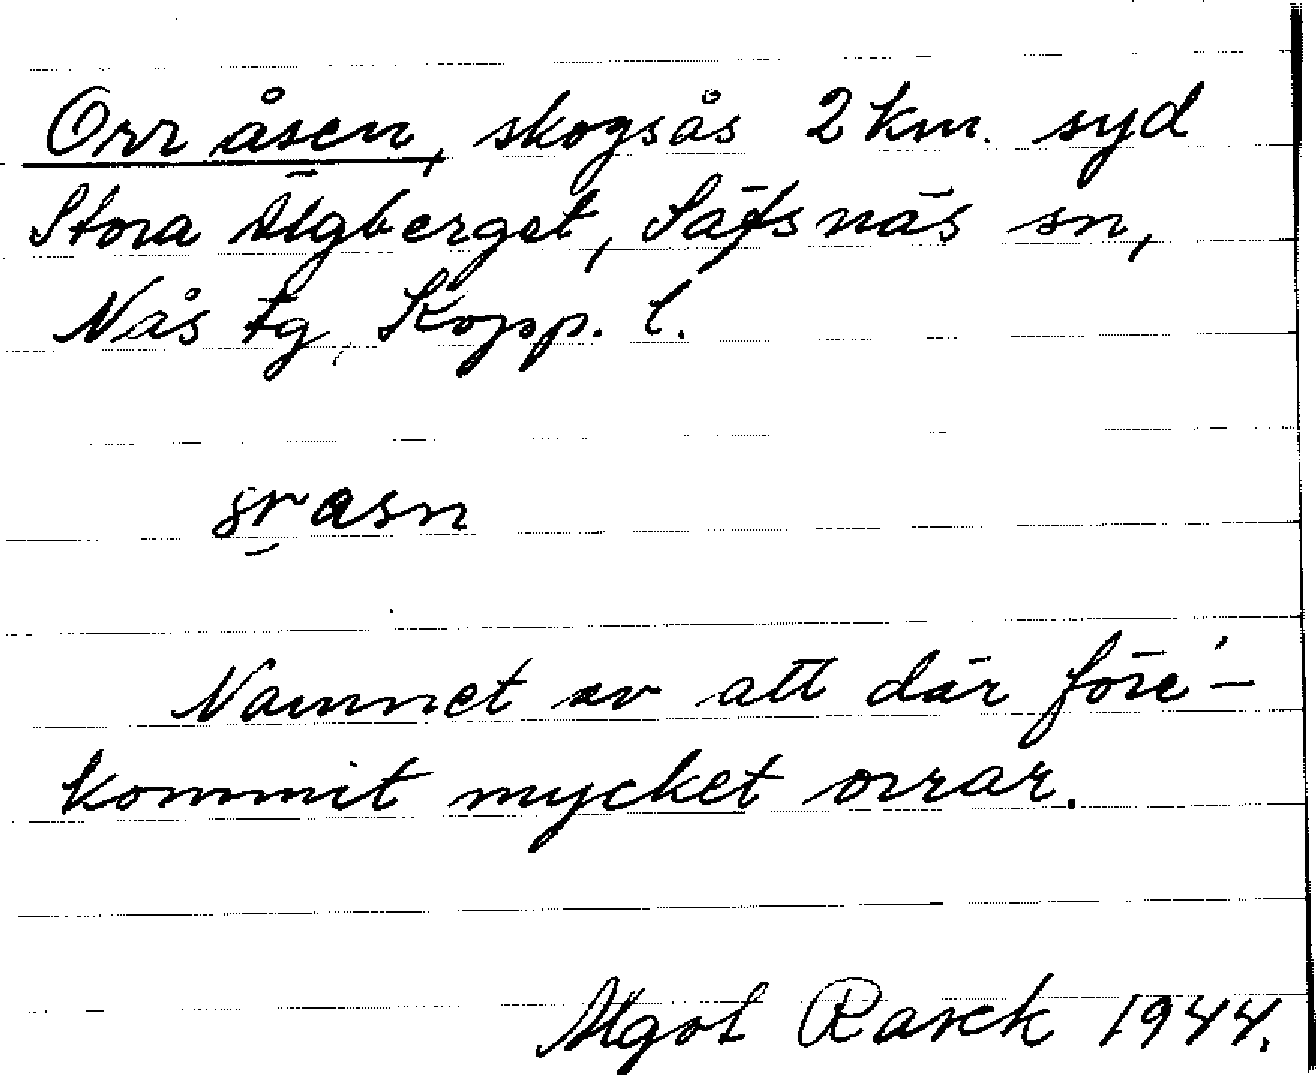 Orråsen, skogsås 2 km. syd
Stora Älgberget, Säfsnäs sn,
Nås tg, Kopp. l.
Namnet av att där före-
kommit mycket orrar.
Algot Rasck 1944.